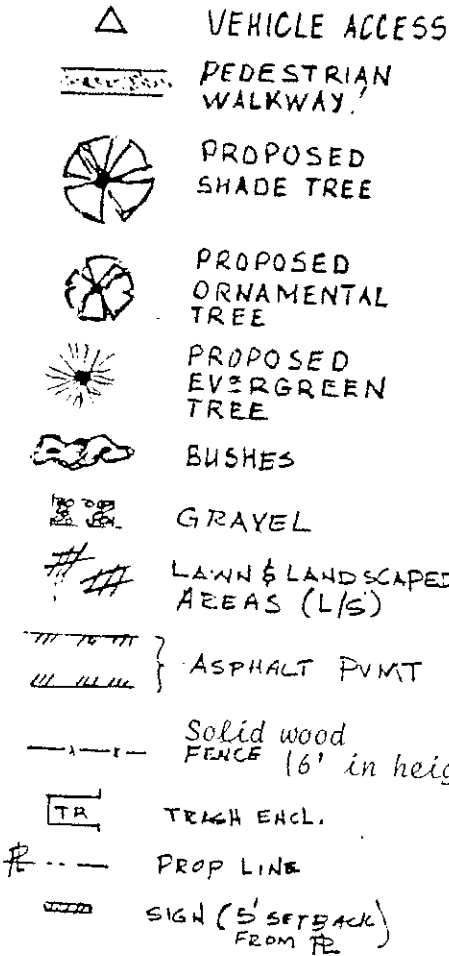 VEHICLE ACCESS
PEDESTRIAN
WALKWAY!
PROPOSED
SHADE TREE
PROPOSED
ORNAMENTAL
TREE
PROPOSED
EVERGREEN
TREE
BUSHES
GRAVEL
LAWN & LANDSCAPED
AREAS (L/S)
ASPHALT PVMT
Solid wood
FENCE 16' in heig
TR TRASH ENCL.
PL PROP LINE
SIGN (5' SETBACK)
FROM PL